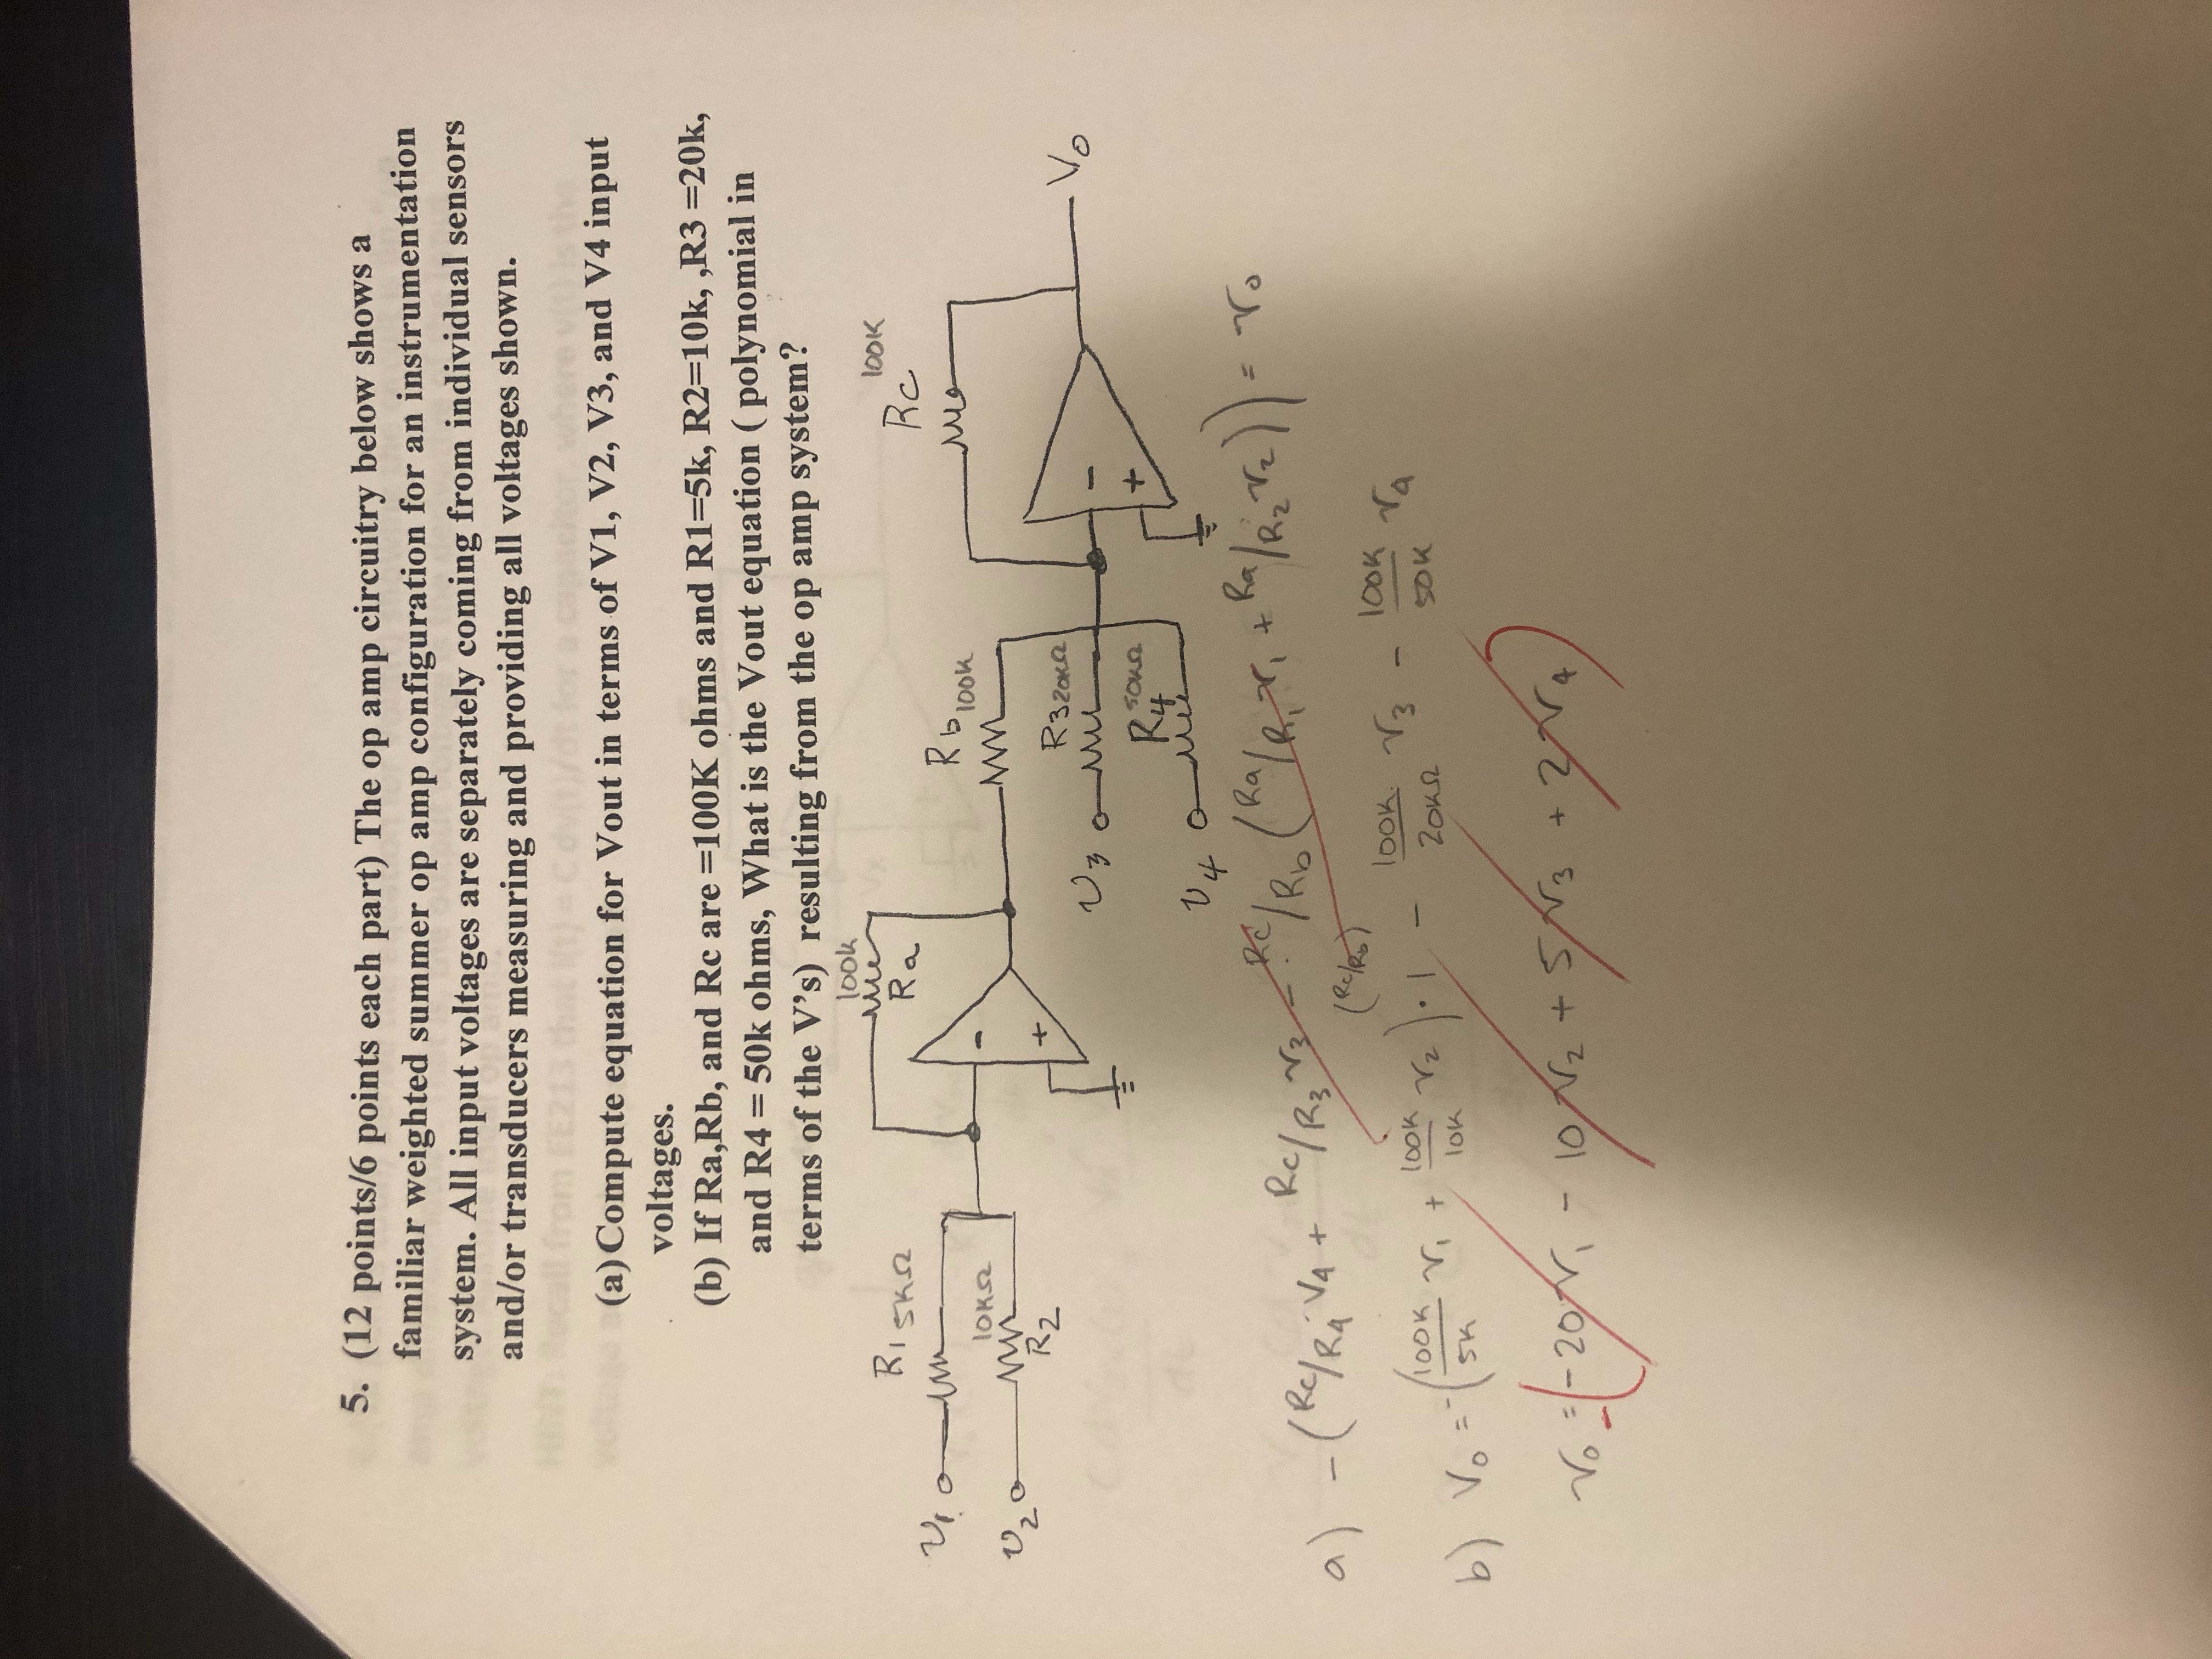 5. (12 points/6 points each part) The op amp circuitry below shows a
familiar weighted summer op amp configuration for an instrumentation
system. All input voltages are separately coming from individual sensors
and/or transducers measuring and providing all voltages shown.
HINT: Recall from EE213 that i(t) = C dv(t)/dt for a capacitor, where v(t) is the
voltage
(a) Compute equation for Vout in terms of V1, V2, V3, and V4 input
voltages.
(b) If Ra,Rb, and Rc are =100K ohms and R1=5k, R2=10k, ,R3 =20k,
and R4 = 50k ohms, What is the Vout equation ( polynomial in
terms of the V's) resulting from the op amp system?
100k
Ra
R1 5KΩ
v1
10KΩ
v2
R2
-
+
Rb 100K
Rc 100K
R3 20KΩ
v3
R4 50KΩ
v4
-
+
Vo
a) -(Rc/R4 V4 + Rc/R3 v3 - Rc/Rb (Ra/R1 v1 + Ra/R2 v2)) = vo
(Rc/Rb)
b) Vo = -(100K/5K v1 + 100K/10K v2) · 1 - 100K/20KΩ v3 - 100K/50K v4
vo = -(-20 v1 - 10 v2 + 5 v3 + 2 v4)